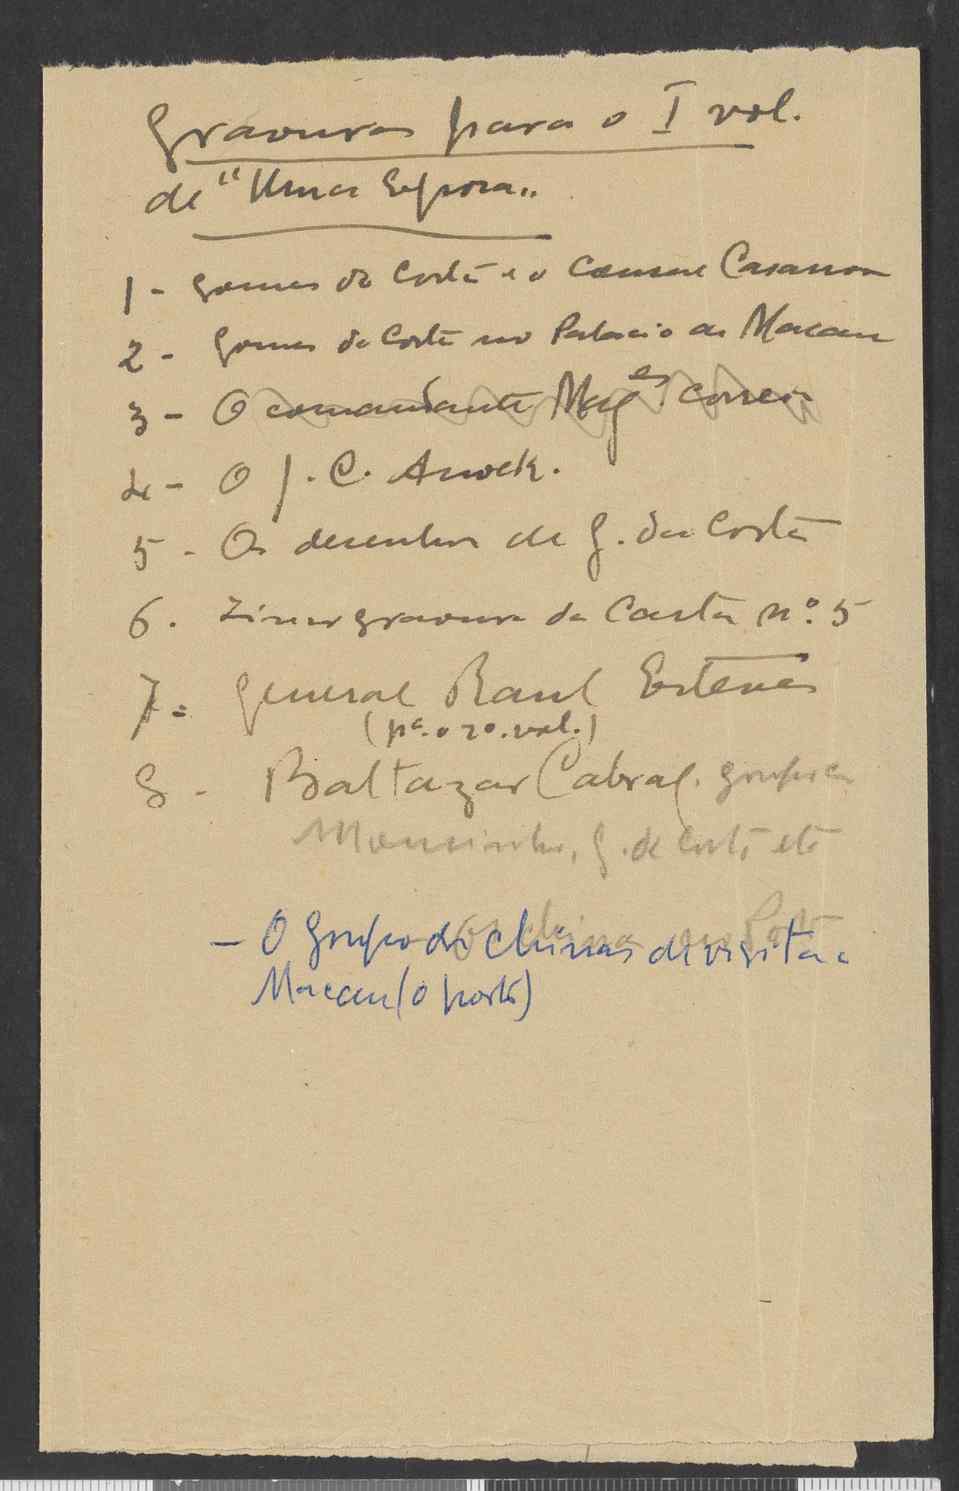 Gravuras para o I vol.
de "Uma Epoca"
1 - Gomes da Costa e o Casanova
2 - Gomes da Costa no Palacio de Macau
3 - O comandante Mag^es Correia
4 - O J. C. Anock.
5 - Os desenhos de G. da Costa
6. Zincogravura da Carta nº. 5
7 = General Raul Esteves
(pª. o 2º. vol.)
8 - Baltazar Cabral. grupo
Mousinho, G. de Costa etc
- O Grupo de chinas de visita a
Macau (o poste)